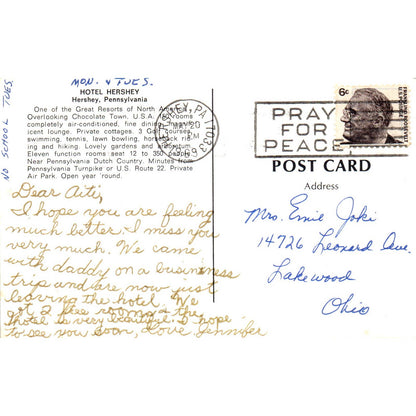 MON. & TUES.
NO SCHOOL TUES
HOTEL HERSHEY
Hershey, Pennsylvania
One of the Great Resorts of North America.
Overlooking Chocolate Town, U.S.A. rooms
completely air-conditioned, fine dining
icent lounge. Private cottages. 3 Golf Courses,
swimming, tennis, lawn bowling, horseback
ing and hiking. Lovely gardens and
Eleven function rooms seat 12 to 350
Near Pennsylvania Dutch Country. Minutes from
Pennsylvania Turnpike or U.S. Route 22. Private
Air Park. Open year 'round.
HERSHEY, PA 17033
MAY 20
PM
6c
PRAY
FOR
PEACE
POST CARD
Address
Dear Aiti,
I hope you are feeling
much better. I miss you
very much. We came
with daddy on a business
trip and are now just
leaving the hotel. We
2 free rooms & the
hotel is very beautiful. I hope
to see you soon, Love Jennifer
Mrs. Emie Joki
14726 Leonard Ave.
Lakewood
Ohio